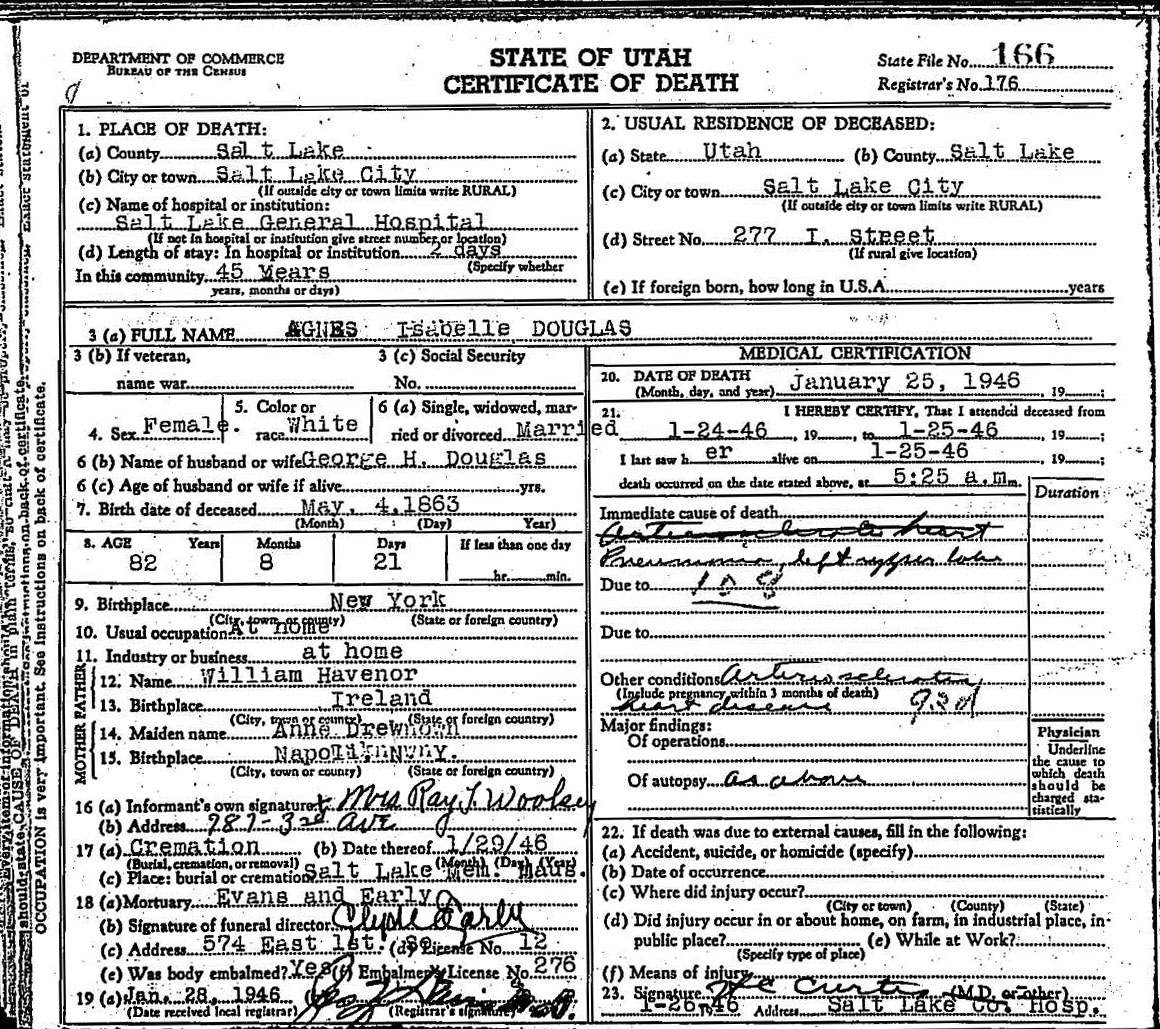 DEPARTMENT OF COMMERCE
BUREAU OF THE CENSUS
STATE OF UTAH
CERTIFICATE OF DEATH
State File No. 166
Registrar's No. 176
1. PLACE OF DEATH:
(a) County Salt Lake
(b) City or town Salt Lake City
(If outside city or town limits write RURAL)
(c) Name of hospital or institution:
Salt Lake General Hospital
(If not in hospital or institution give street number or location)
(d) Length of stay: In hospital or institution 2 days
(Specify whether
In this community 45 Years
years, months or days)
2. USUAL RESIDENCE OF DECEASED:
(a) State Utah (b) County Salt Lake
(c) City or town Salt Lake City
(If outside city or town limits write RURAL)
(d) Street No. 277 I. Street
(If rural give location)
(e) If foreign born, how long in U.S.A. years
3 (a) FULL NAME AGNES Isabelle DOUGLAS
3 (b) If veteran,
name war
3 (c) Social Security
No.
4. Sex Female.
5. Color or
race White
6 (a) Single, widowed, mar-
ried or divorced Married
6 (b) Name of husband or wife George H. Douglas
6 (c) Age of husband or wife if alive yrs.
7. Birth date of deceased May. 4.1863
(Month) (Day) Year)
8. AGE Years Months Days If less than one day
82 8 21 hr. min.
9. Birthplace New York
(City, town or county) (State or foreign country)
10. Usual occupation At home
11. Industry or business at home
FATHER
12. Name William Havenor
13. Birthplace Ireland
(City, town or county) (State or foreign country)
MOTHER
14. Maiden name Anne
15. Birthplace
(City, town or county) (State or foreign country)
16 (a) Informant's own signature Mrs Ray T. Woolsey
(b) Address 787-3rd Ave
17 (a) Cremation (b) Date thereof 1/29/46
(Burial, cremation, or removal) (Month) (Day) (Year)
(c) Place: burial or cremation Salt Lake Mem. Maus.
18 (a) Mortuary Evans and Early
(b) Signature of funeral director Clyde Early
(c) Address 574 East 1st. So. (d) License No. 12
(e) Was body embalmed? Yes (f) Embalmer License No. 276
19 (a) Jan. 28, 1946
(Date received local registrar) (Registrar's signature)
MEDICAL CERTIFICATION
20. DATE OF DEATH January 25, 1946
(Month, day, and year) 19 ;
21. I HEREBY CERTIFY, That I attended deceased from
1-24-46 , 19 , to 1-25-46 , 19 ;
I last saw h er alive on 1-25-46 , 19 ;
death occurred on the date stated above, at 5:25 a.m.
Duration
Immediate cause of death
Arteriosclerotic heart
Pneumonia, left upper lobe
Due to 108
Due to
Other conditions Arteriosclerotic
(Include pregnancy within 3 months of death)
heart disease
Major findings:
Of operations
Of autopsy as above
Physician
Underline
the cause to
which death
should be
charged sta-
tistically
22. If death was due to external causes, fill in the following:
(a) Accident, suicide, or homicide (specify)
(b) Date of occurrence
(c) Where did injury occur?
(City or town) (County) (State)
(d) Did injury occur in or about home, on farm, in industrial place, in
public place? (e) While at Work?
(Specify type of place)
(f) Means of injury
23. Signature Curtis (M.D. or other)
1-26-46 Address Salt Lake Co. Hosp.
OCCUPATION is very important. See instructions on back of certificate.